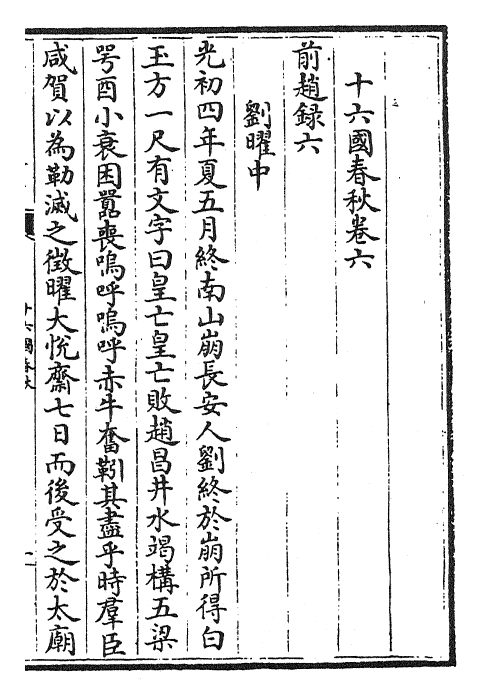 十六國春秋卷六
前趙録六
劉曜中
光初四年夏五月終南山崩長安人劉終於崩所得白
玉方一尺有文字曰皇亡皇亡敗趙昌井水竭構五梁
咢酉小衰困嚻喪嗚呼嗚呼赤牛奮靷其盡乎時羣臣
咸賀以為勒滅之徵曜大悅齋七日而後受之於太廟
十六國春秋